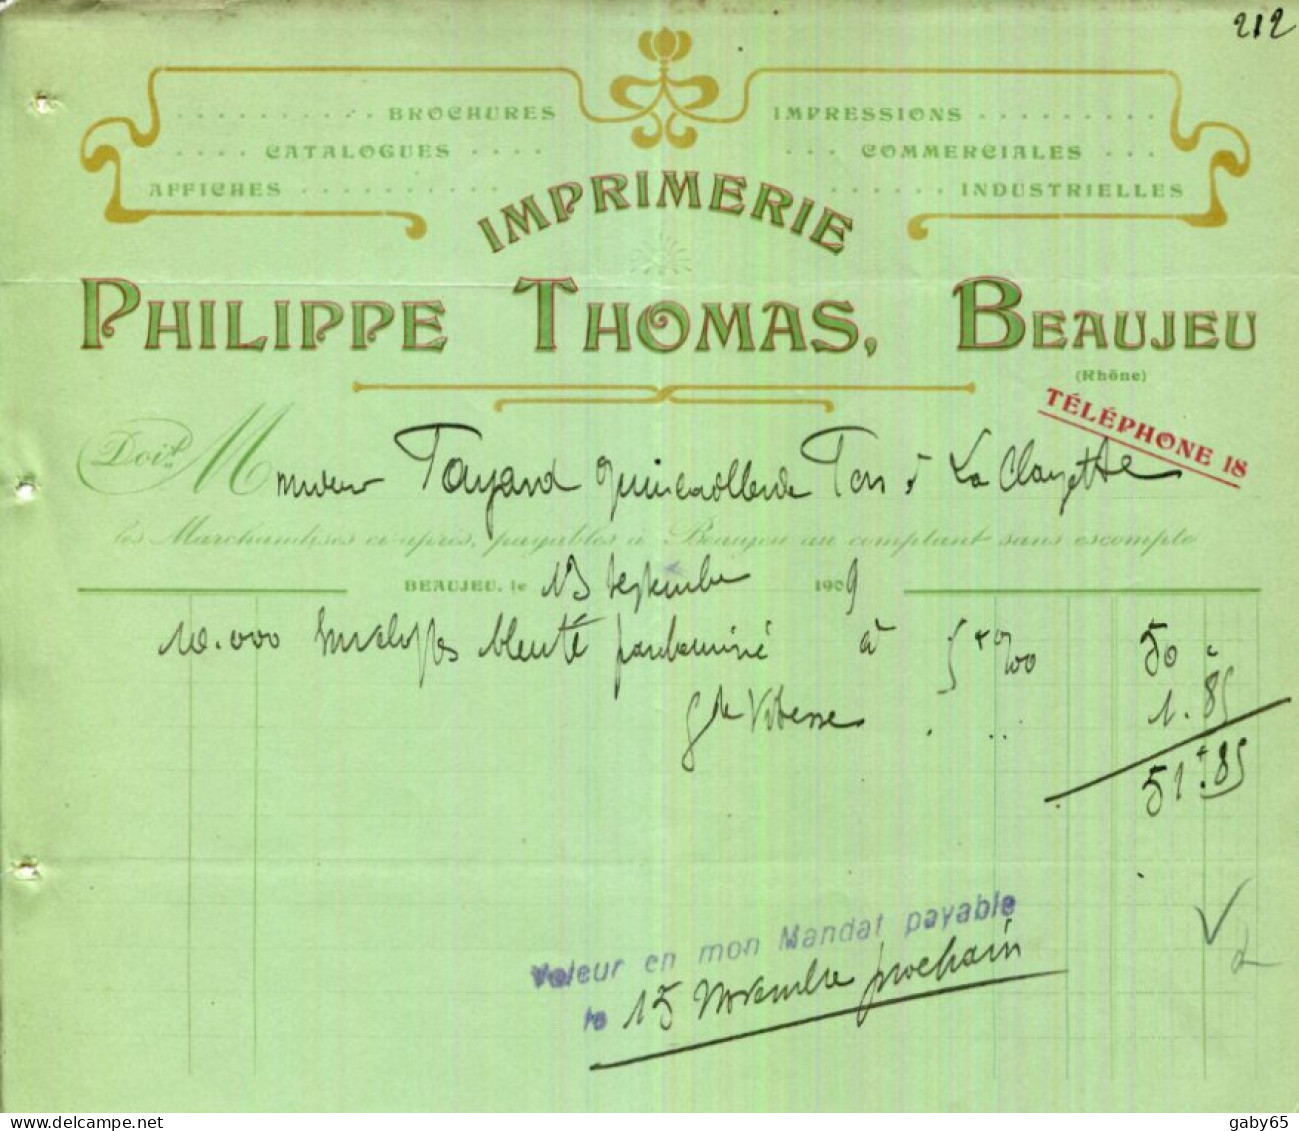 212
BROCHURES
CATALOGUES
AFFICHES
IMPRESSIONS
COMMERCIALES
INDUSTRIELLES
IMPRIMERIE
PHILIPPE THOMAS, BEAUJEU
(Rhône)
TÉLÉPHONE 18
Doit M onsieur Fayard à La Clayette
les Marchandises ci-après, payables à Beaujeu au comptant sans escompte
BEAUJEU, le 13 Septembre 1909
10.000 Enveloppes bleuté à 5 50
Gde Vitesse 1.85
51.85
Valeur en mon Mandat payable
le 15 Novembre prochain
gaby65